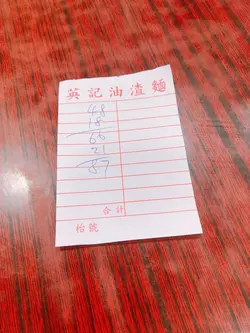 英記油渣麵
48
18
66
21
87
合計
枱號